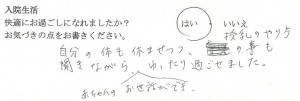 入院生活
快適にお過ごしになれましたか? はい いいえ
お気づきの点をお書きください。 授乳のやり方
自分の体も休ませつつ、の事も
聞きながら ゆったり過ごせました。
赤ちゃんの お世話がです。